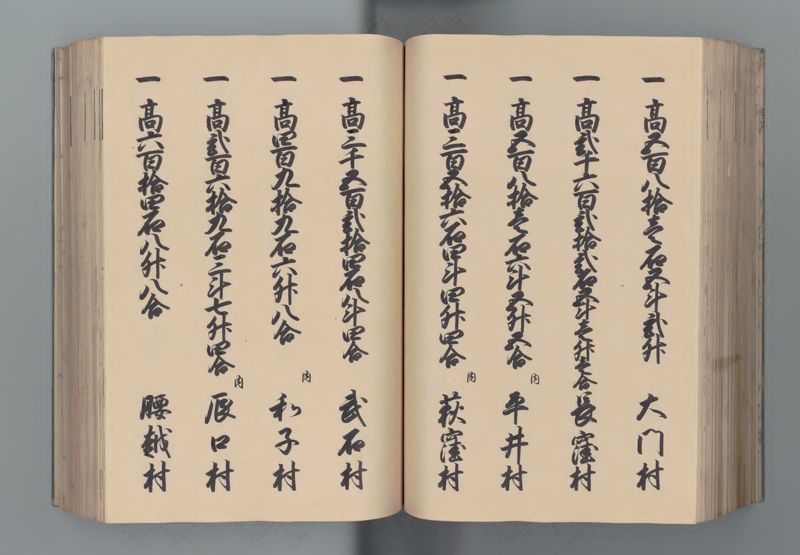 一 高五百八拾壱石五斗弐升 大門村
一 高弐千六百弐拾弐石五斗壱升七合 長窪村
一 高五百八拾壱石六斗五升五合 内 平井村
一 高三百五拾六石四斗四升四合 内 荻窪村
一 高三千五百弐拾四石八斗四合 武石村
一 高四百九拾九石六升八合 内 和子村
一 高弐百六拾九石三斗七升四合 内 辰口村
一 高六百拾四石八升八合 腰越村